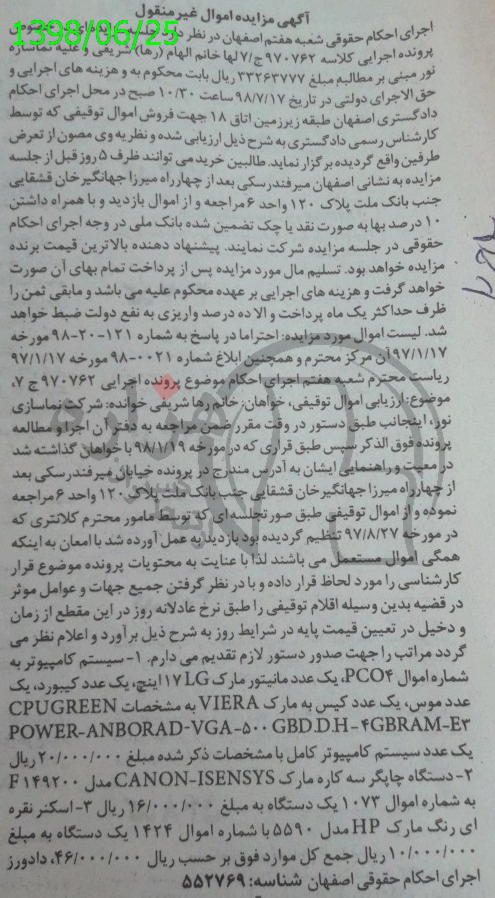 1398/06/25
آگهی مزایده اموال غیر منقول
اجرای احکام حقوقی شعبه هفتم اصفهان در نظر دارد
پرونده اجرایی کلاسه ۹۷۰۷۶۲ ج/۷ لها خانم الهام (رها) شریفی و علیه نماسازه
نور مبنی بر مطالبه مبلغ ۳۳۲۶۳۷۷۷ ریال بابت محکوم به و هزینه های اجرایی و
حق الاجرای دولتی در تاریخ ۹۸/۷/۱۷ ساعت ۱۰/۳۰ صبح در محل اجرای احکام
دادگستری اصفهان طبقه زیرزمین اتاق ۱۸ جهت فروش اموال توقیفی که توسط
کارشناس رسمی دادگستری به شرح ذیل ارزیابی شده و نظریه وی مصون از تعرض
طرفین واقع گردیده برگزار نماید. طالبین خرید می توانند ظرف ۵ روز قبل از جلسه
مزایده به نشانی اصفهان میرفندرسکی بعد از چهارراه میرزا جهانگیرخان قشقایی
جنب بانک ملت پلاک ۱۲۰ واحد ۶ مراجعه و از اموال بازدید و با همراه داشتن
۱۰ درصد بها به صورت نقد یا چک تضمین شده بانک ملی در وجه اجرای احکام
حقوقی در جلسه مزایده شرکت نمایند. پیشنهاد دهنده بالاترین قیمت برنده
مزایده خواهد بود. تسلیم مال مورد مزایده پس از پرداخت تمام بهای آن صورت
خواهد گرفت و هزینه های اجرایی بر عهده محکوم علیه می باشد و مابقی ثمن را
ظرف حداکثر یک ماه پرداخت و الا ده درصد واریزی به نفع دولت ضبط خواهد
شد. لیست اموال مورد مزایده: احتراما در پاسخ به شماره ۱۲۱-۲۰-۹۸ مورخه
۹۷/۱/۱۷ آن مرکز محترم و همچنین ابلاغ شماره ۰۰۲۱-۹۸ مورخه ۹۷/۱/۱۷
ریاست محترم شعبه هفتم اجرای احکام موضوع پرونده اجرایی ۹۷۰۷۶۲ ج ۷،
موضوع: ارزیابی اموال توقیفی، خواهان: خانم رها شریفی خوانده: شرکت نماسازی
نور، اینجانب طبق دستور در وقت مقرر ضمن مراجعه به دفتر آن اجرا و مطالعه
پرونده فوق الذکر سپس طبق قراری که در مورخه ۹۸/۱/۱۹ با خواهان گذاشته شد
در معیت و راهنمایی ایشان به آدرس مندرج در پرونده خیابان میرفندرسکی بعد
از چهارراه میرزا جهانگیرخان قشقایی جنب بانک ملت پلاک ۱۲۰ واحد ۶ مراجعه
نموده و از اموال توقیفی طبق صورتجلسه ای که توسط مامور محترم کلانتری که
در مورخه ۹۷/۸/۲۷ تنظیم گردیده بود بازدید به عمل آورده شد با امعان به اینکه
همگی اموال مستعمل می باشند لذا با عنایت به محتویات پرونده موضوع قرار
کارشناسی را مورد لحاظ قرار داده و با در نظر گرفتن جمیع جهات و عوامل موثر
در قضیه بدین وسیله اقلام توقیفی را طبق نرخ عادلانه روز در این مقطع از زمان
و دخیل در تعیین قیمت پایه در شرایط روز به شرح ذیل برآورد و اعلام نظر می
گردد مراتب را جهت صدور دستور لازم تقدیم می دارم. ۱- سیستم کامپیوتر به
شماره اموال PCO۴، یک عدد مانیتور مارک LG ۱۷ اینچ، یک عدد کیبورد، یک
عدد موس، یک عدد کیس به مارک VIERA به مشخصات CPUGREEN
POWER-ANBORAD-VGA-۵۰۰ GBD.D.H-۴GBRAM-E۳
یک عدد سیستم کامپیوتر کامل با مشخصات ذکر شده مبلغ ۲۰/۰۰۰/۰۰۰ ریال
۲- دستگاه چاپگر سه کاره مارک CANON-ISENSYS مدل F۱۴۹۲۰۰
به شماره اموال ۱۰۷۳ یک دستگاه به مبلغ ۱۶/۰۰۰/۰۰۰ ریال ۳- اسکنر نقره
ای رنگ مارک HP مدل ۵۵۹۰ با شماره اموال ۱۴۲۴ یک دستگاه به مبلغ
۱۰/۰۰۰/۰۰۰ ریال جمع کل موارد فوق بر حسب ریال ۴۶/۰۰۰/۰۰۰، دادورز
اجرای احکام حقوقی اصفهان شناسه: ۵۵۲۷۶۹